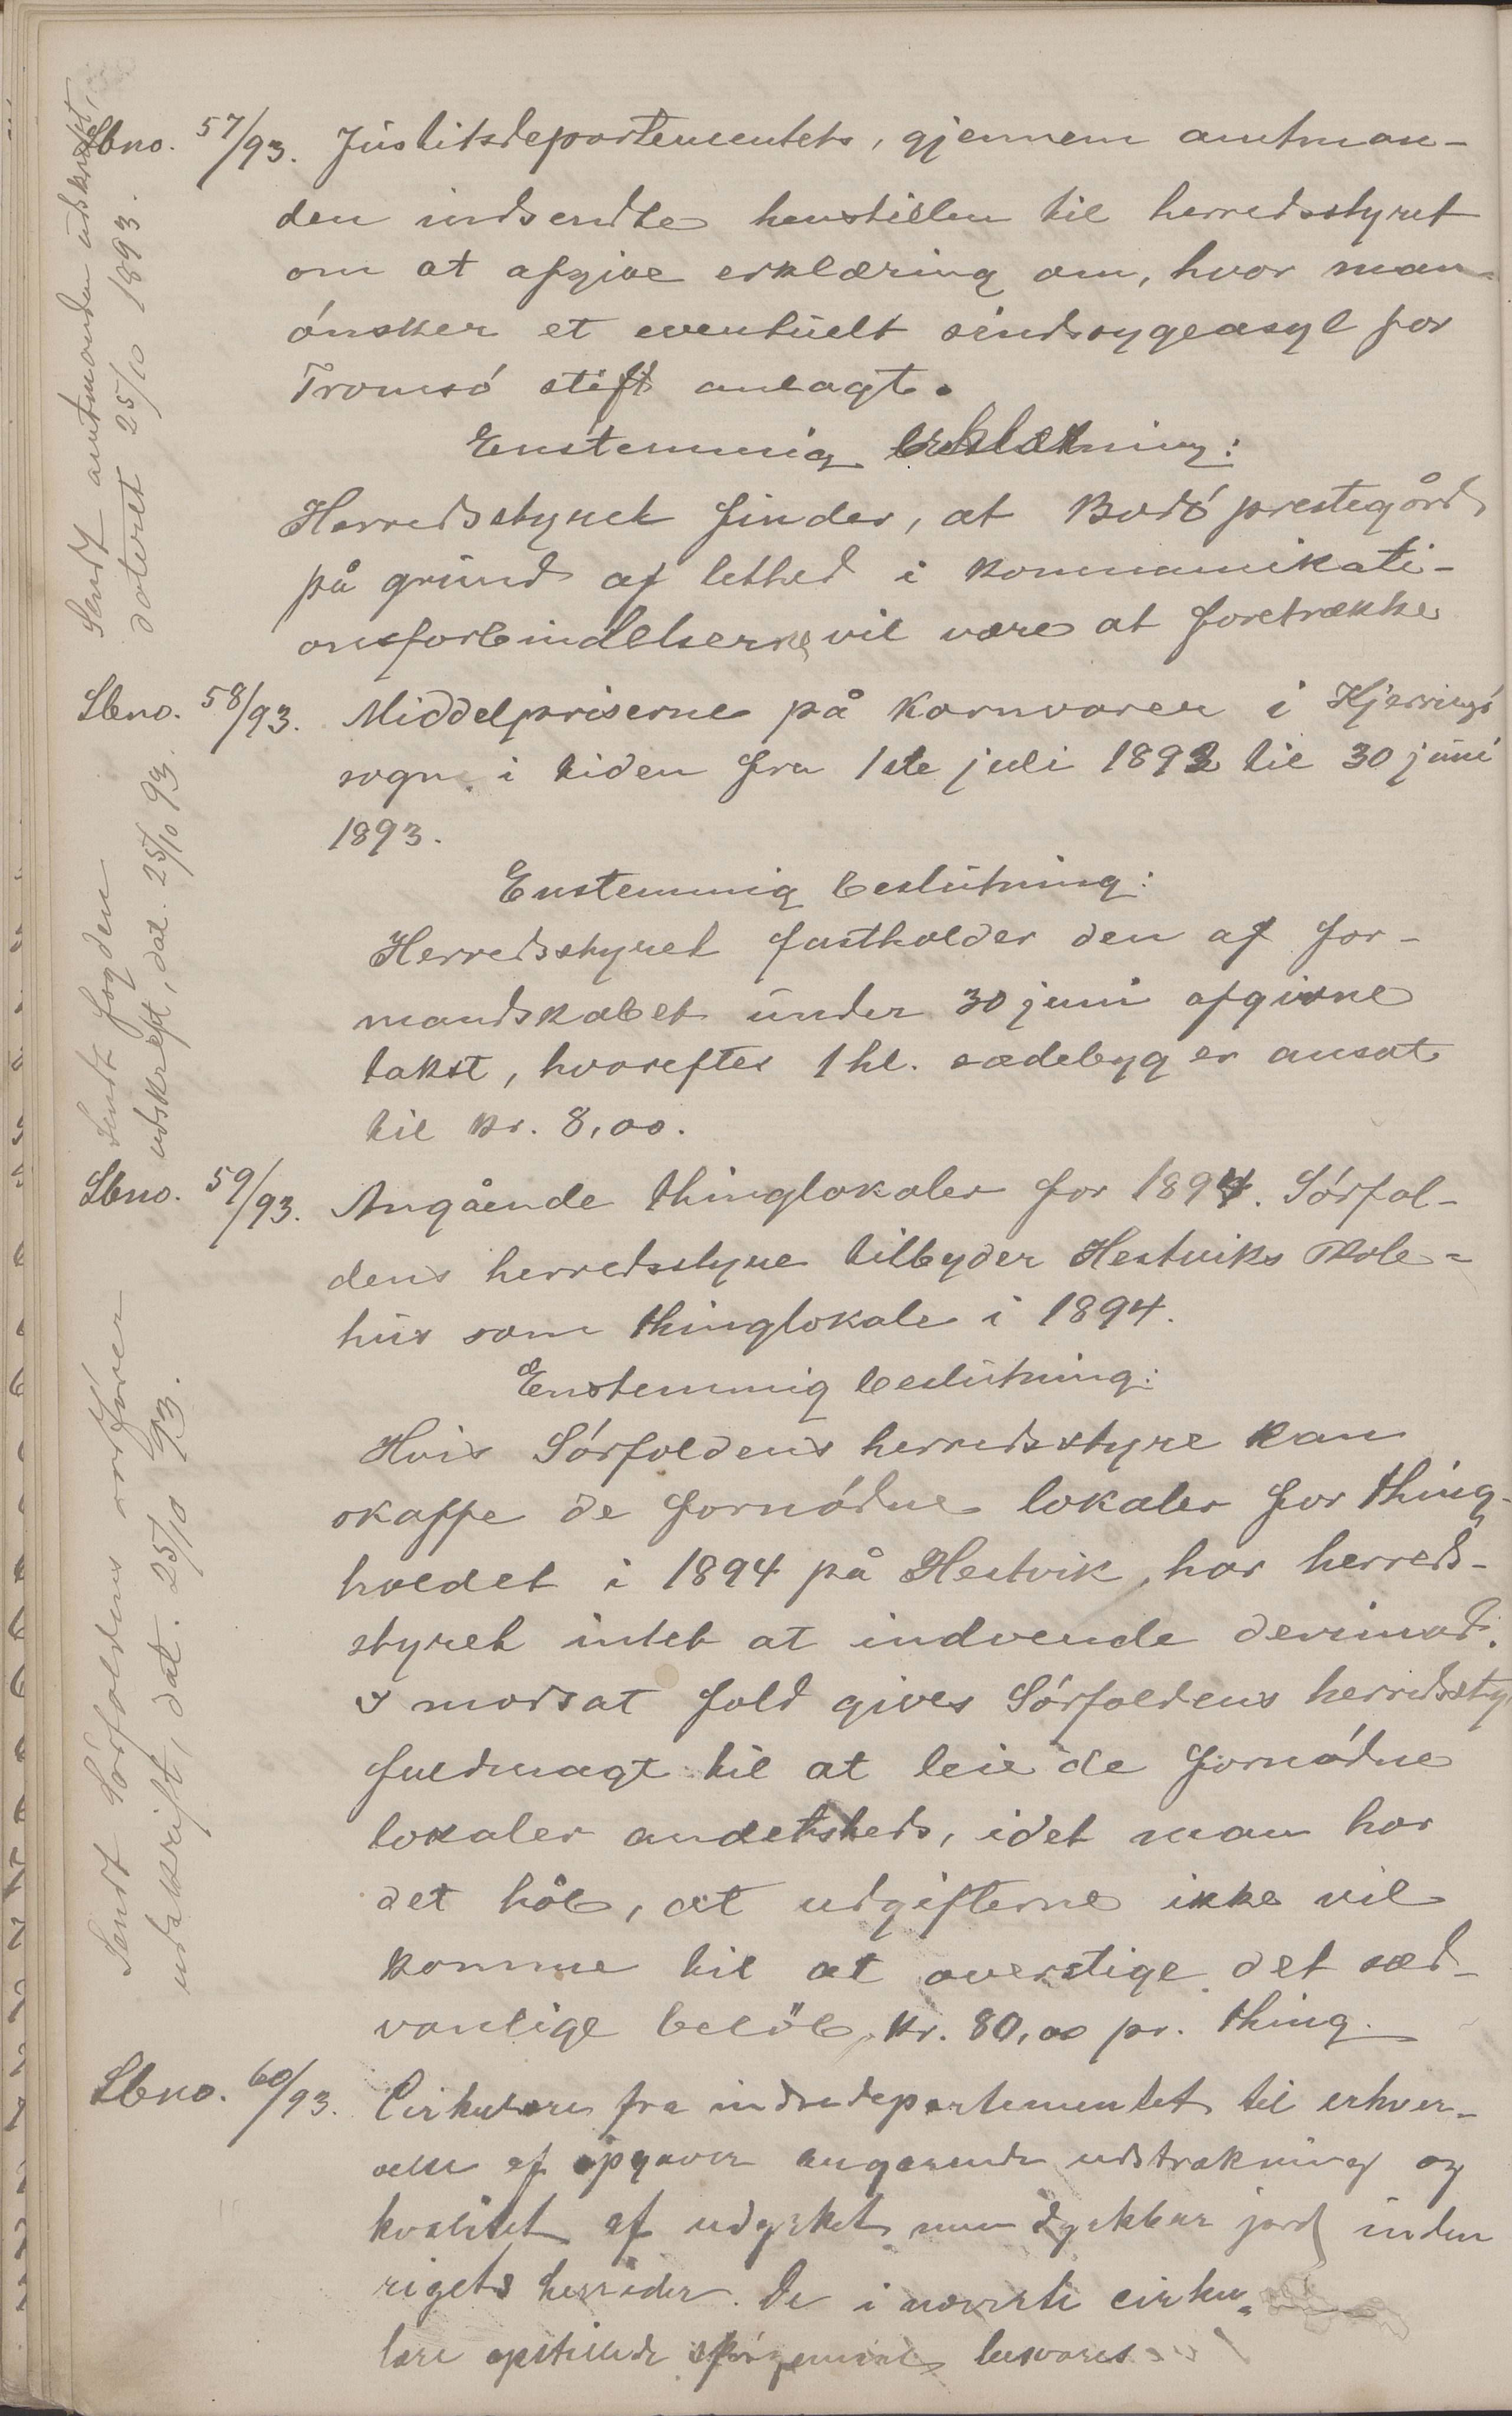 Sbno. 57/93. Justitsdepartementets, gjennem amtman-
den indsendte henstillen til herredsstyret
om at afgive erklæring om, hvor man
ónsker et eventuelt sindssygeasyl for
Tromsó stift anlagt.
Enstemmig erklæring:
Herredsstyret finder, at Bodó prestegård
på grund af lethed i kommunikati-
onsforbindelserne, vil være at foretrække
Sendt amtmanden udskrift,
dateret 25/10 1893.
Sbno. 58/93. Middelpriserne på kornvarer i Kjerringó
sogn i tiden fra 1ste juli 1892 til 30 juni
1893.
Enstemmig beslutning:
Herredsstyret fastholder den af for-
mandskabet under 30 juni afgivne
takst, hvorefter 1 hl. sædebyg er ansat
til kr. 8,00.
Sendt fogden
udskrift, dat. 25/10 93.
Sbno. 59/93. Angående thinglokaler for 1894. Sórfol-
dens herredsstyre tilbyder Hestviks skole-
hus som thinglokale i 1894.
Enstemmig beslutning:
Hvis Sórfoldens herredsstyre kan
skaffe de fornódne lokaler for thing-
holdet i 1894 på Hestvik, har herreds-
styret intet at indvende derimod.
I modsat fald gives Sórfoldens herredssty
fuldmagt til at leie de fornódne
lokaler andetsteds, idet man har
det håb, at udgifterne ikke vil
komme til at overstige det sæd-
vanlige belöb, kr. 80,00 pr. thing.
Sendt Sórfoldens ordfórer
udskrift, dat. 25/10 93.
Sbno. 60/93. Cirkulære fra indredepartementet til erhver-
velse af opgaver angaaende udstrækning og
kvalitet af udyrket men dyrkbar jord inden
rigets herreder. De i nævnte cirku-
lære opstillede spórgsmaal besvares